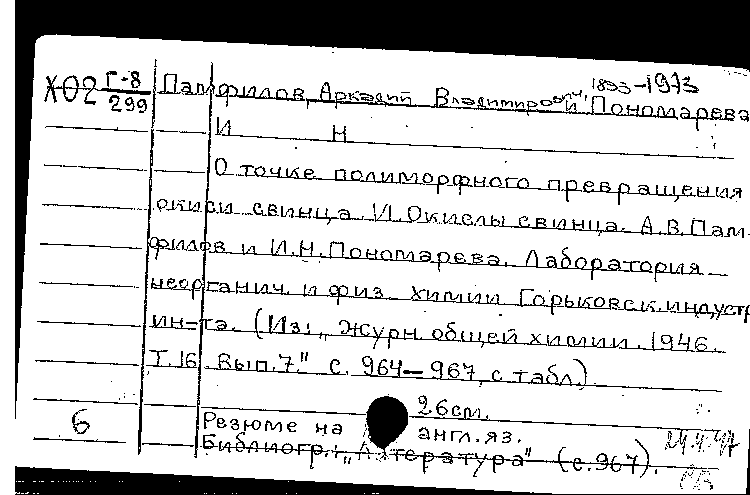 Х02 Г-8
299
Памфилов, Аркадий Владимирович, 1893-1973
и Пономарева
И Н
О точке полиморфного превращения
окиси свинца. И. Окислы свинца. А.В.Пам-
филов и И.Н.Пономарева. Лаборатория
неорганич. и физ. химии Горьковск.индустр
ин-та. (Из: „Журн. общей химии. 1946.
Т.16. Вып.7." с. 964-967, с табл.)
26см.
6
Резюме на англ.яз.
Библиогр.: „Литература" (с.967).